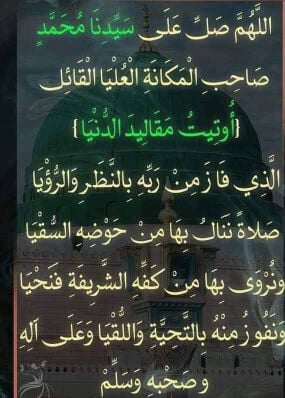 اللَّهُمَّ صَلِّ عَلَى سَيِّدِنَا مُحَمَّدٍ
صَاحِبِ الْمَكَانَةِ الْعُلْيَا الْقَائل
{أُوتِيتُ مَقَالِيدَ الدُّنْيَا}
الَّذِي فَازَ مِنْ رَبِّهِ بِالنَّظَرِ وَالرُّؤْيَا
صَلاةً نَنَالُ بِهَا مِنْ حَوْضِهِ السُّقْيَا
وَنُرْوَى بِهَا مِنْ كَفِّهِ الشَّرِيفَةِ فَنَحْيَا
وَنَفُوزُ مِنْهُ بِالتَّحِيَّةِ وَاللُّقْيَا وَعَلَى آلِهِ
وَصَحْبِهِ وَسَلِّمْ